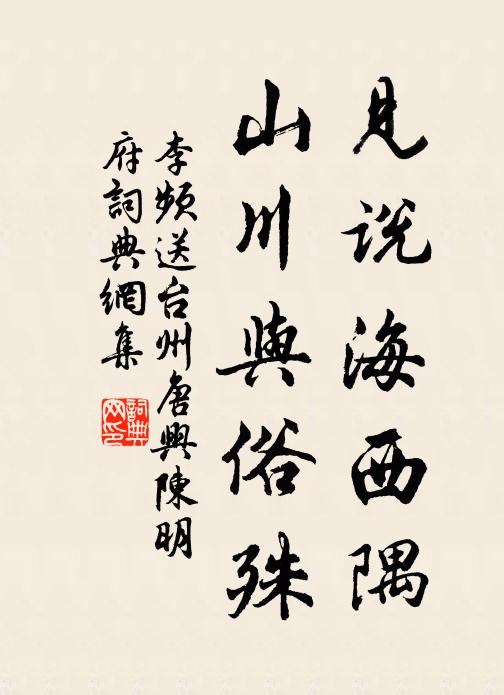 見説海西隅
山川與俗殊
李頻送台州唐興陳明
府詞典網集
詞典
网印